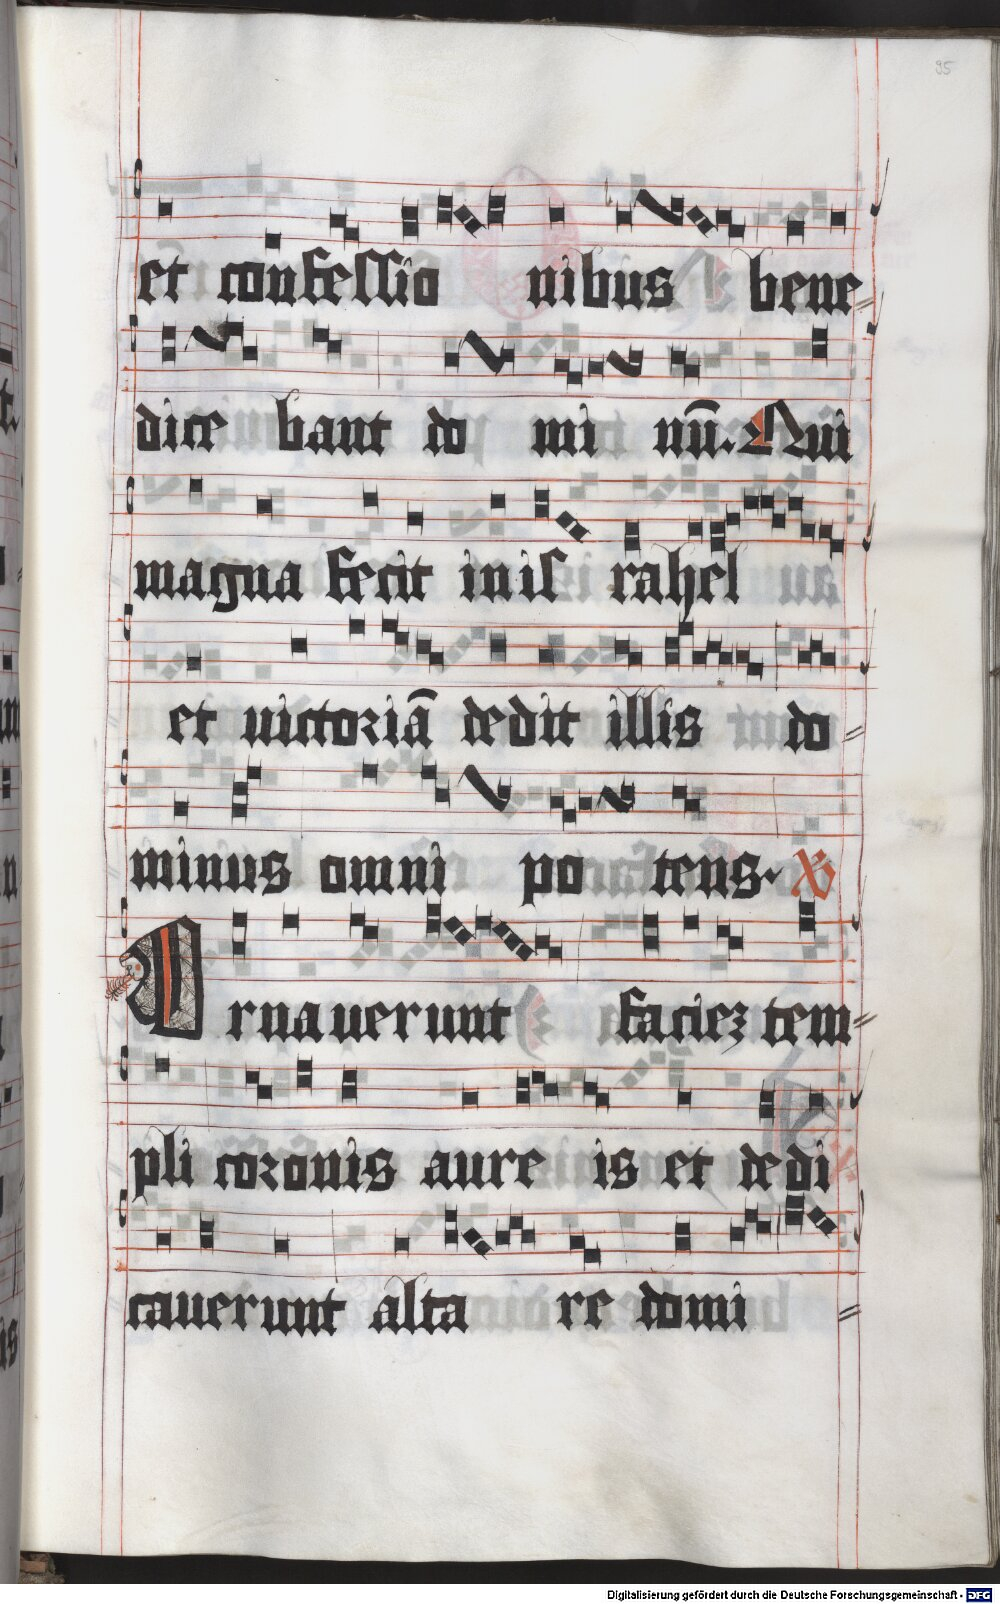 95
et confessio nibus bene
dice bant do mi nū. Qui
magna fecit in israhel
et uictoriā dedit illis do
minus omni po tens.
Ornauerunt faciez tem
pli coronis aure is et dedi
cauerunt alta re domi
Digitalisierung gefördert durch die Deutsche Forschungsgemeinschaft - DFG